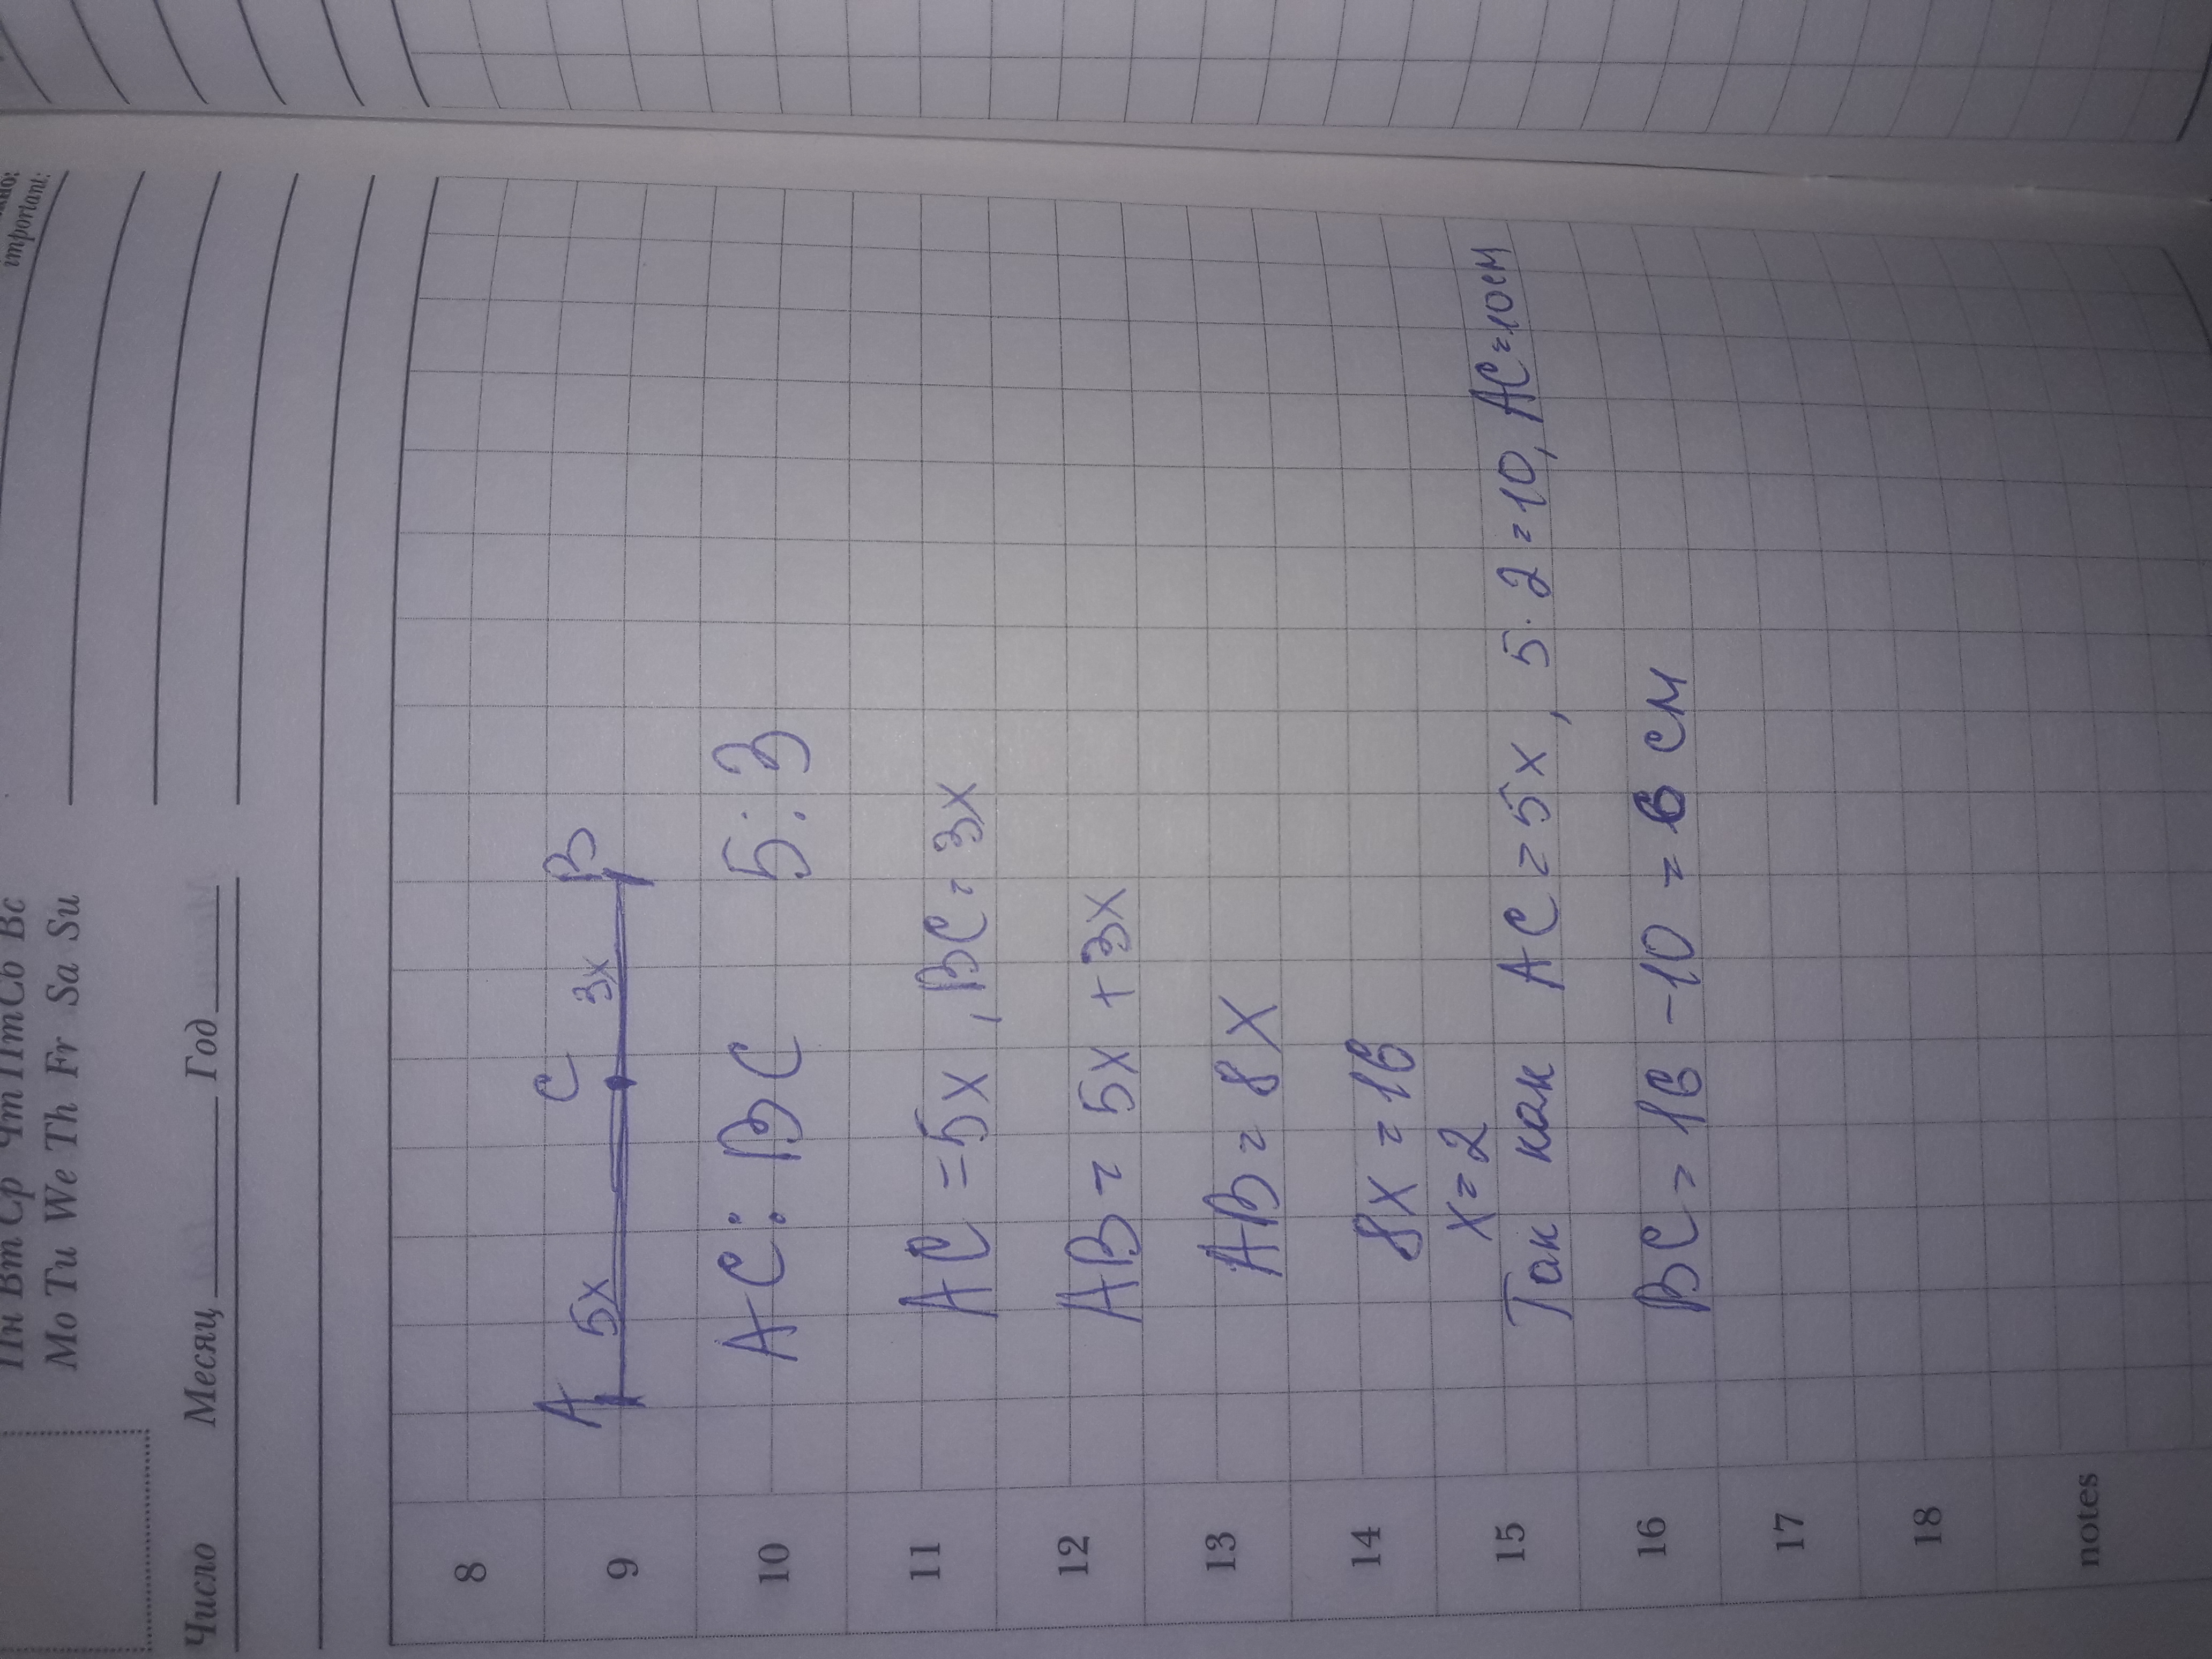 важно:
important:
Пн Вт Ср Чт Пт Сб Вс
Mo Tu We Th Fr Sa Su
Число Месяц Год
8
A 5x C 3x B
9
10 AC : BC 5 : 3
11 AC = 5x, BC = 3x
12 AB = 5x + 3x
13 AB = 8x
14 8x = 16
x = 2
15 Так как AC = 5x, 5 · 2 = 10, AC = 10 см
16 BC = 16 - 10 = 6 см
17
18
notes